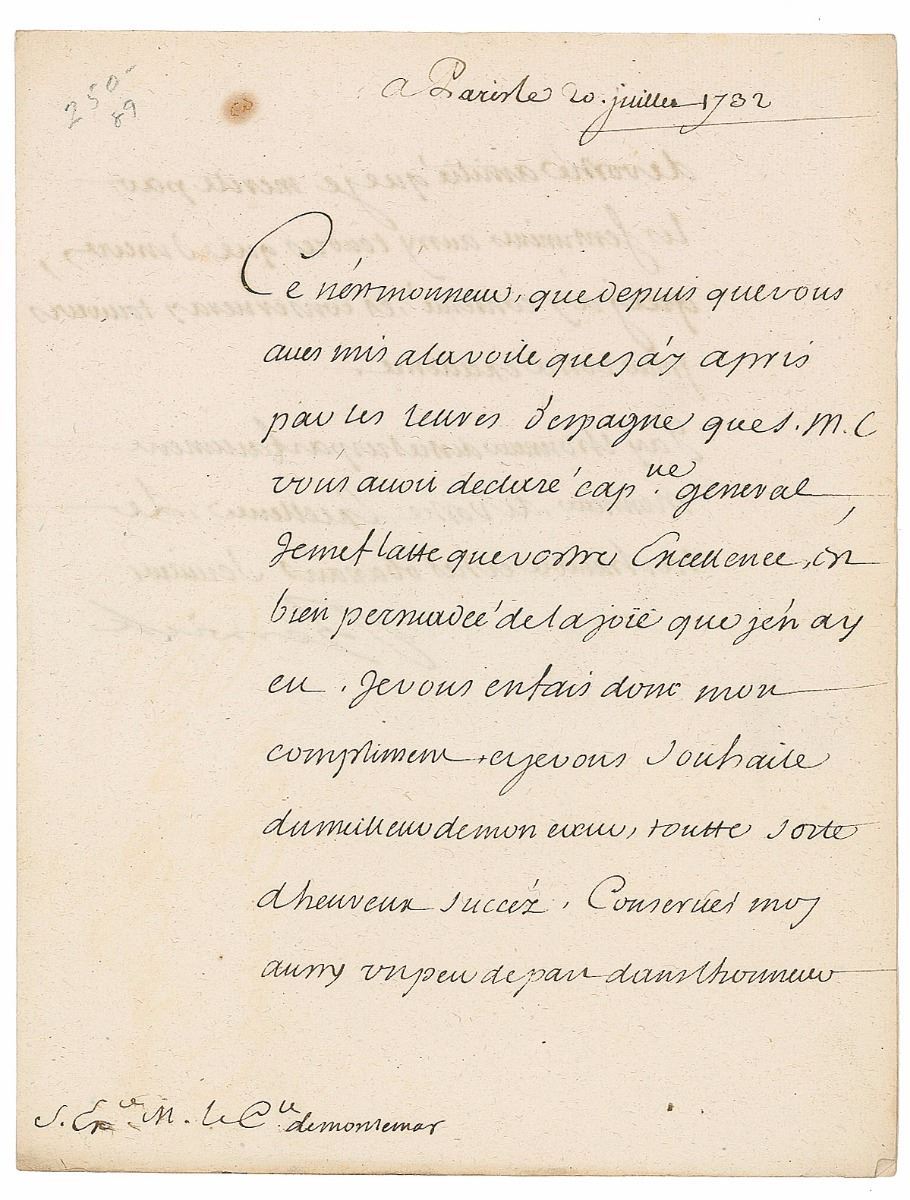 250-
89
a Paris le 20. juillet 1732
Ce n'est monsieur, que depuis que vous
aues mis a la voile que j'ay apris
par les lettres d'espagne que S. M. C
vous auoit declaré cap.ne general
Je me flatte que vostre Excellence, est
bien persuadeé de la joïe que j'en ay
eu. Je vous en fais donc mon
compliment, et je vous souhaite
du meilleur de mon cœur, toutte sorte
d'heureux succéz. Conserués moy
aussy vn peu de part dans lhonneur
S. Ex.ce M. le C.te de montemar